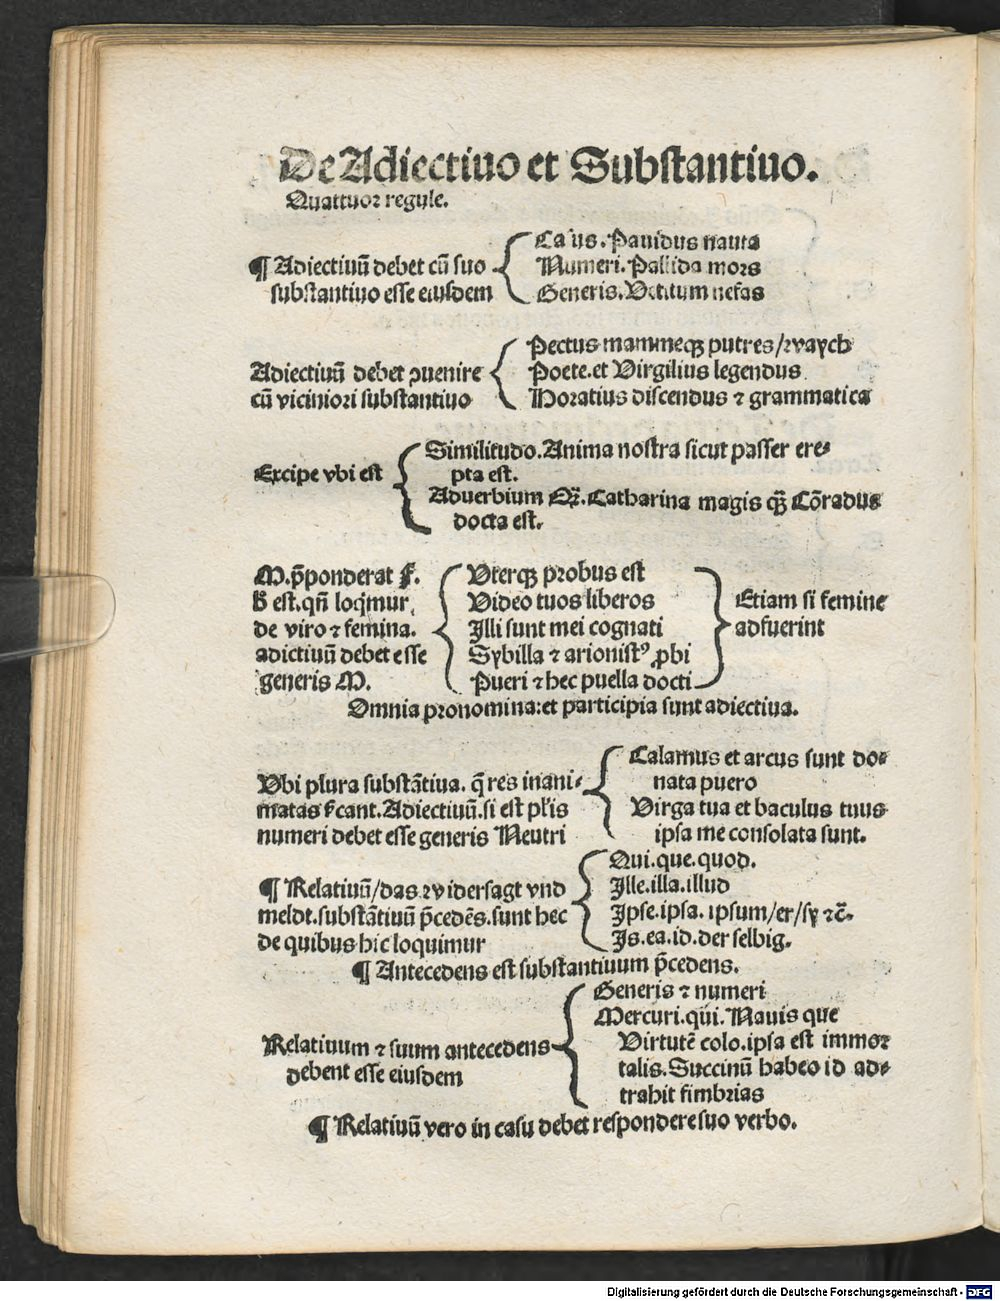 De Adiectiuo et Substantiuo.
Quattuor regule.
¶ Adiectiuū debet cū suo
substantiuo esse eiusdem
Casus. Pauidus nauta
Numeri. Pallida mors
Generis. Vetitum nefas
Adiectiuū debet ꝯuenire
cū viciniori substantiuo
Pectus mammeqꝫ putres/ zwaych
Poete. et Virgilius legendus
Horatius discendus ⁊ grammatica
Excipe vbi est
Similitudo. Anima nostra sicut passer ere⸗
pta est.
Aduerbium Catharina magis qꝫ̄ Cōradus
docta est.
M. p̄ponderat F.
est. qn̄ loqmur
de viro ⁊ femina.
adictiuū debet esse
generis M.
Vterqꝫ probus est
Video tuos liberos
Illi sunt mei cognati
Sybilla ⁊ arionistꝰ ꝓbi
Pueri ⁊ hec puella docti
Etiam si femine
adfuerint
Omnia pronomina: et participia sunt adiectiua.
Vbi plura substātiua. q̄ res inani⸗
matas cant. Adiectiuū. si est pl̄is
numeri debet esse generis Neutri
Calamus et arcus sunt do⸗
nata puero
Virga tua et baculus tuus
ipsa me consolata sunt.
¶ Relatiuū/ das widersagt vnd
meldt. substātiuū p̄cedēs. sunt hec
de quibus hic loquimur
Qui. que. quod.
Ille. illa. illud
Ipse. ipsa. ipsum/ er/ sy ⁊c̄.
Is. ea. id. der selbig.
¶ Antecedens est substantiuum p̄cedens.
Relatiuum ⁊ suum antecedens
debent esse eiusdem
Generis ⁊ numeri
Mercuri. qui. Nauis que
Virtutē colo. ipsa est immor
talis. Succinū habeo id ad⸗
trahit fimbrias
¶ Relatiuū vero in casu debet respondere suo verbo.
Digitalisierung gefördert durch die Deutsche Forschungsgemeinschaft - DFG